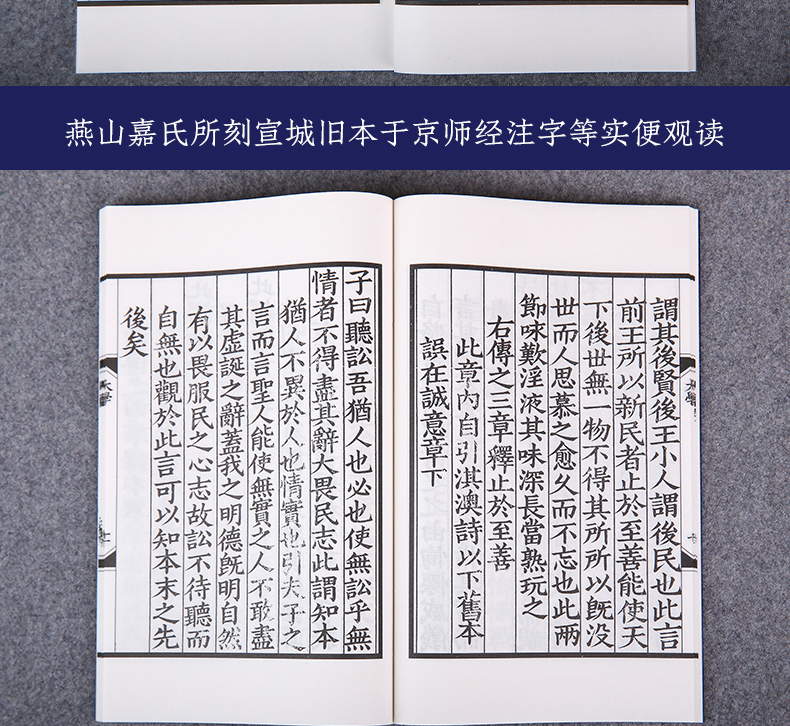 燕山嘉氏所刻宣城旧本于京师经注字等实便观读
謂其後賢後王小人謂後民也此言
前王所以新民者止於至善能使天
下後世無一物不得其所所以旣沒
世而人思慕之愈久而不忘也此兩
節咏歎淫液其味深長當熟玩之
右傳之三章釋止於至善
此章內自引淇澳詩以下舊本
誤在誠意章下
子曰聽訟吾猶人也必也使無訟乎無
情者不得盡其辭大畏民志此謂知本
猶人不異於人也情實也引夫子之
言而言聖人能使無實之人不敢盡
其虛誕之辭蓋我之明德旣明自然
有以畏服民之心志故訟不待聽而
自無也觀於此言可以知本末之先
後矣